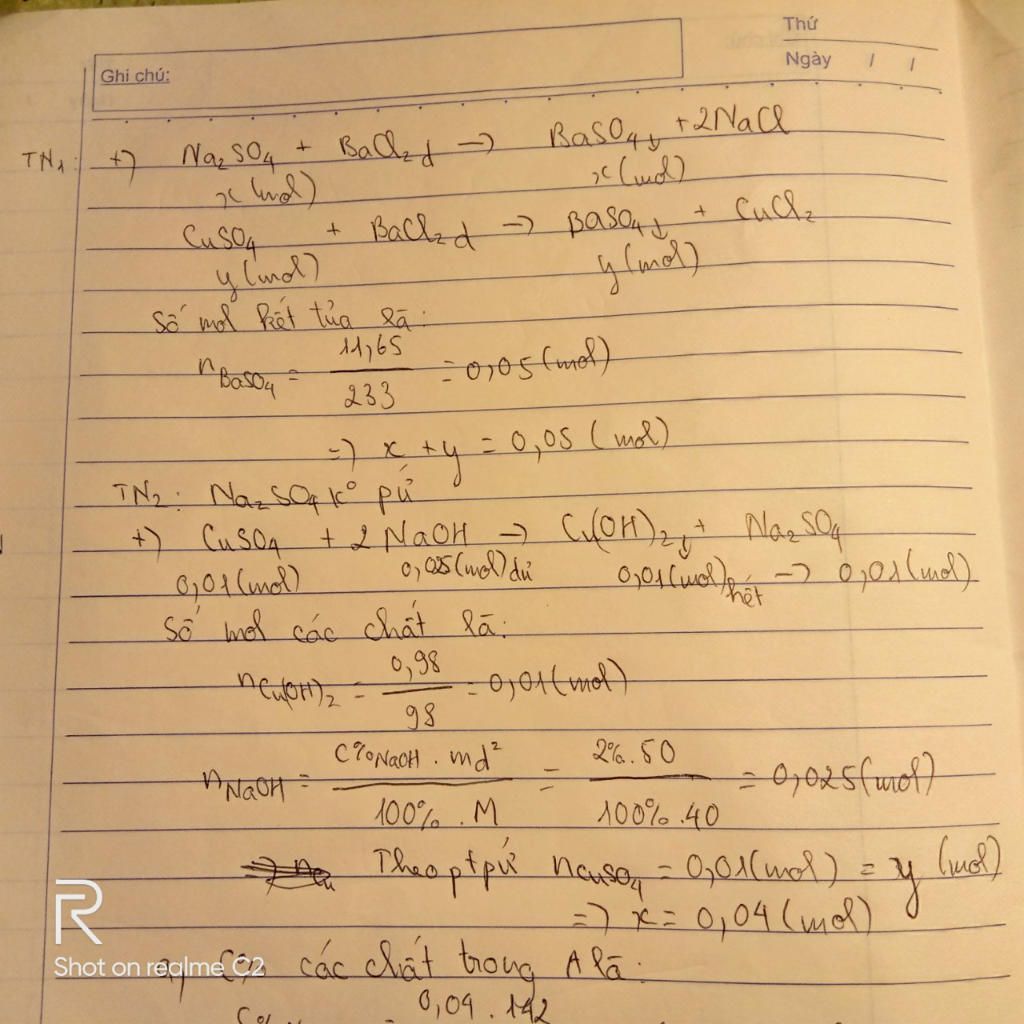 Thứ
Ghi chú:
Ngày / /
TN₁: +) Na₂SO₄ + BaCl₂ d → BaSO₄↓ + 2NaCl
x (mol) x (mol)
CuSO₄ + BaCl₂ d → BaSO₄↓ + CuCl₂
y (mol) y (mol)
Số mol kết tủa là:
n BaSO₄ = 11,65 / 233 = 0,05 (mol)
=) x + y = 0,05 (mol)
TN₂: Na₂SO₄ k° pứ
+) CuSO₄ + 2 NaOH → Cu(OH)₂↓ + Na₂SO₄
0,01 (mol) 0,025 (mol) dư 0,01 (mol) hết → 0,01 (mol)
Số mol các chất là:
n Cu(OH)₂ = 0,98 / 98 = 0,01 (mol)
n NaOH = C% NaOH . md² / 100% . M = 2% . 50 / 100% . 40 = 0,025 (mol)
Theo ptpứ n CuSO₄ = 0,01 (mol) = y (mol)
=) x = 0,04 (mol)
a, C% các chất trong A là:
0,04 . 142
R
Shot on realme C2